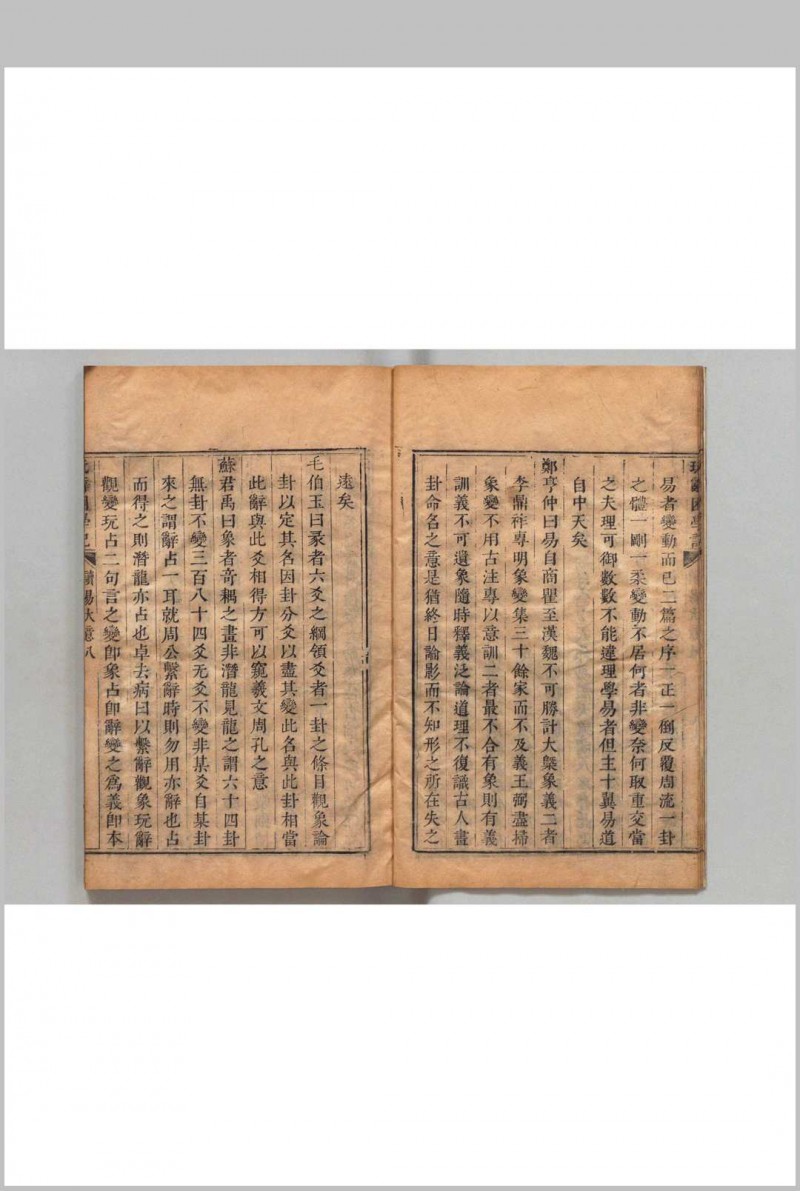 易者變動而已二篇之序一正一倒反覆周流一卦
之體一剛一柔變動不居何者非變奈何取重交當
之夫理可御數數不能違理學易者但主十翼易道
自中天矣
鄭亨仲曰易自商瞿至漢魏不可勝計大槩象義二者
李鼎祚專明象變集三十餘家而不及義王弼盡掃
象變不用古注專以意訓二者最不合有象則有義
訓義不可遺象隨時釋義泛論道理不復識古人畫
卦命名之意是猶終日論影而不知形之所在失之
遠矣
毛伯玉曰彖者六爻之綱領爻者一卦之條目觀象論
卦以定其名因卦分爻以盡其變此名與此卦相當
此辭與此爻相得方可以窺羲文周孔之意
蘇君禹曰象者奇耦之畫非潛龍見龍之謂六十四卦
無卦不變三百八十四爻无爻不變非某爻自某卦
來之謂辭占一耳就周公繫辭時則勿用亦辭也占
而得之則潛龍亦占也卓去病曰以繫辭觀象玩辭
觀變玩占二句言之變卽象占卽辭變之爲義卽本
讀易大意八